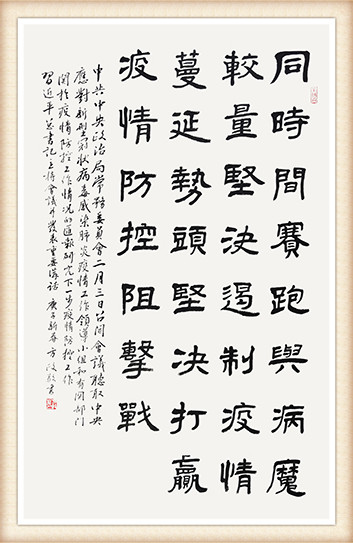 同時間賽跑與病魔
較量堅決遏制疫情
蔓延勢頭堅決打贏
疫情防控阻擊戰
中共中央政治局常務委員會二月三日召開會議聽取中央
應對新型冠狀病毒感染肺炎疫情工作領導小組和有関部门
関於疫情防控工作情况的匯報研究下一步疫情防控工作
習近平总書記主持會議并發表重要講話 庚子新春